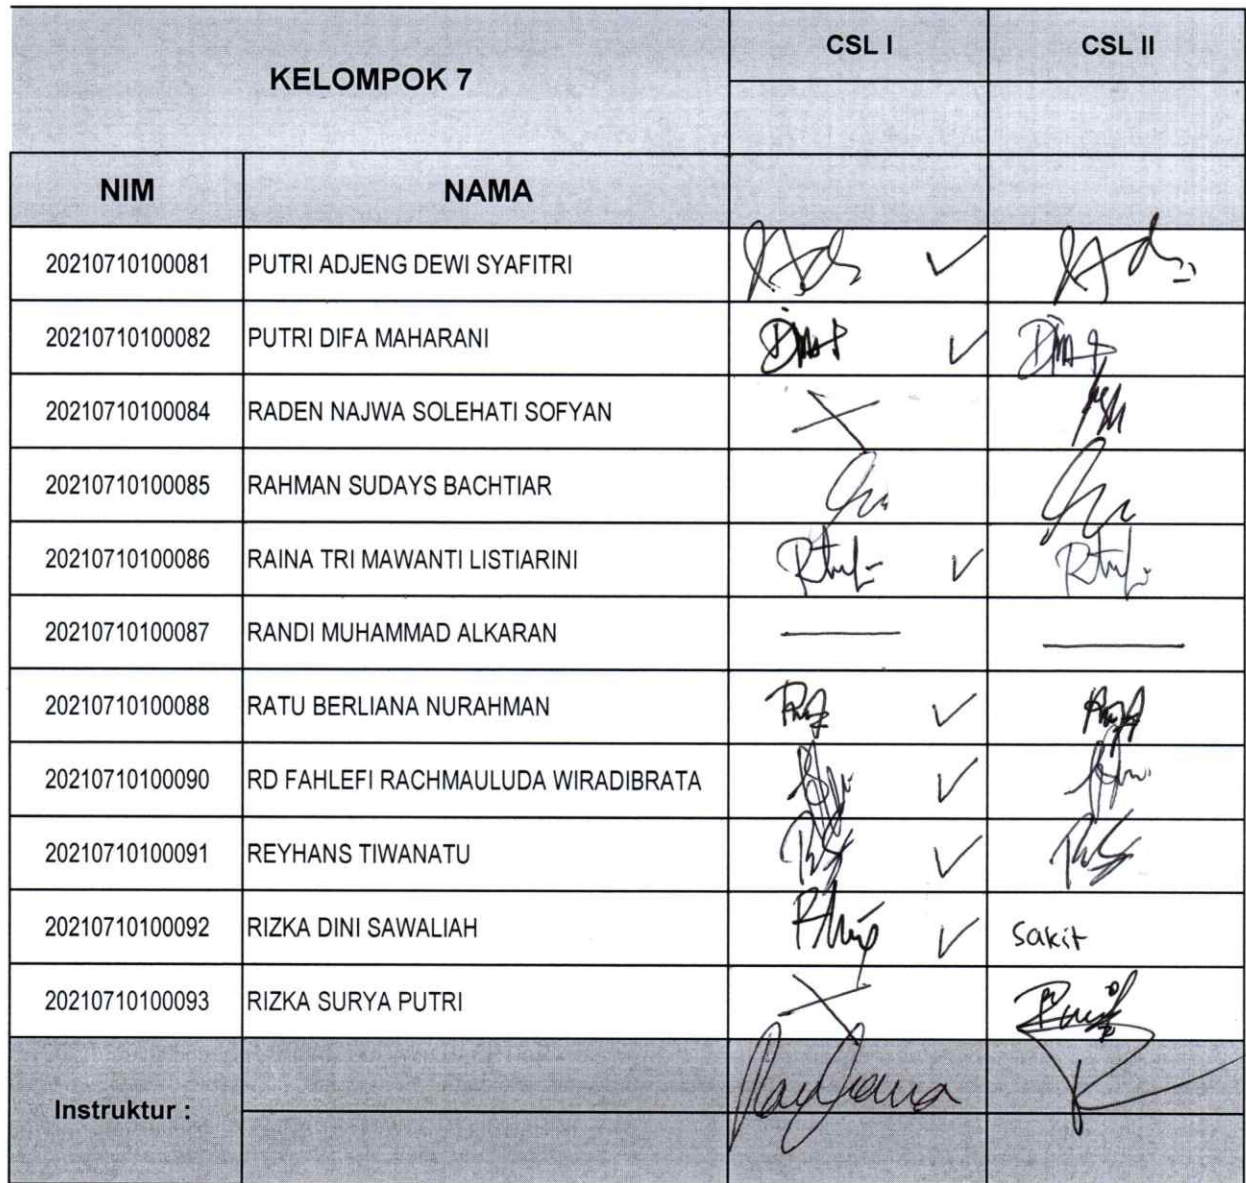 KELOMPOK 7 CSL I CSL II
NIM NAMA
20210710100081 PUTRI ADJENG DEWI SYAFITRI
20210710100082 PUTRI DIFA MAHARANI
20210710100084 RADEN NAJWA SOLEHATI SOFYAN
20210710100085 RAHMAN SUDAYS BACHTIAR
20210710100086 RAINA TRI MAWANTI LISTIARINI
20210710100087 RANDI MUHAMMAD ALKARAN
20210710100088 RATU BERLIANA NURAHMAN
20210710100090 RD FAHLEFI RACHMAULUDA WIRADIBRATA
20210710100091 REYHANS TIWANATU
20210710100092 RIZKA DINI SAWALIAH sakit
20210710100093 RIZKA SURYA PUTRI
Instruktur :